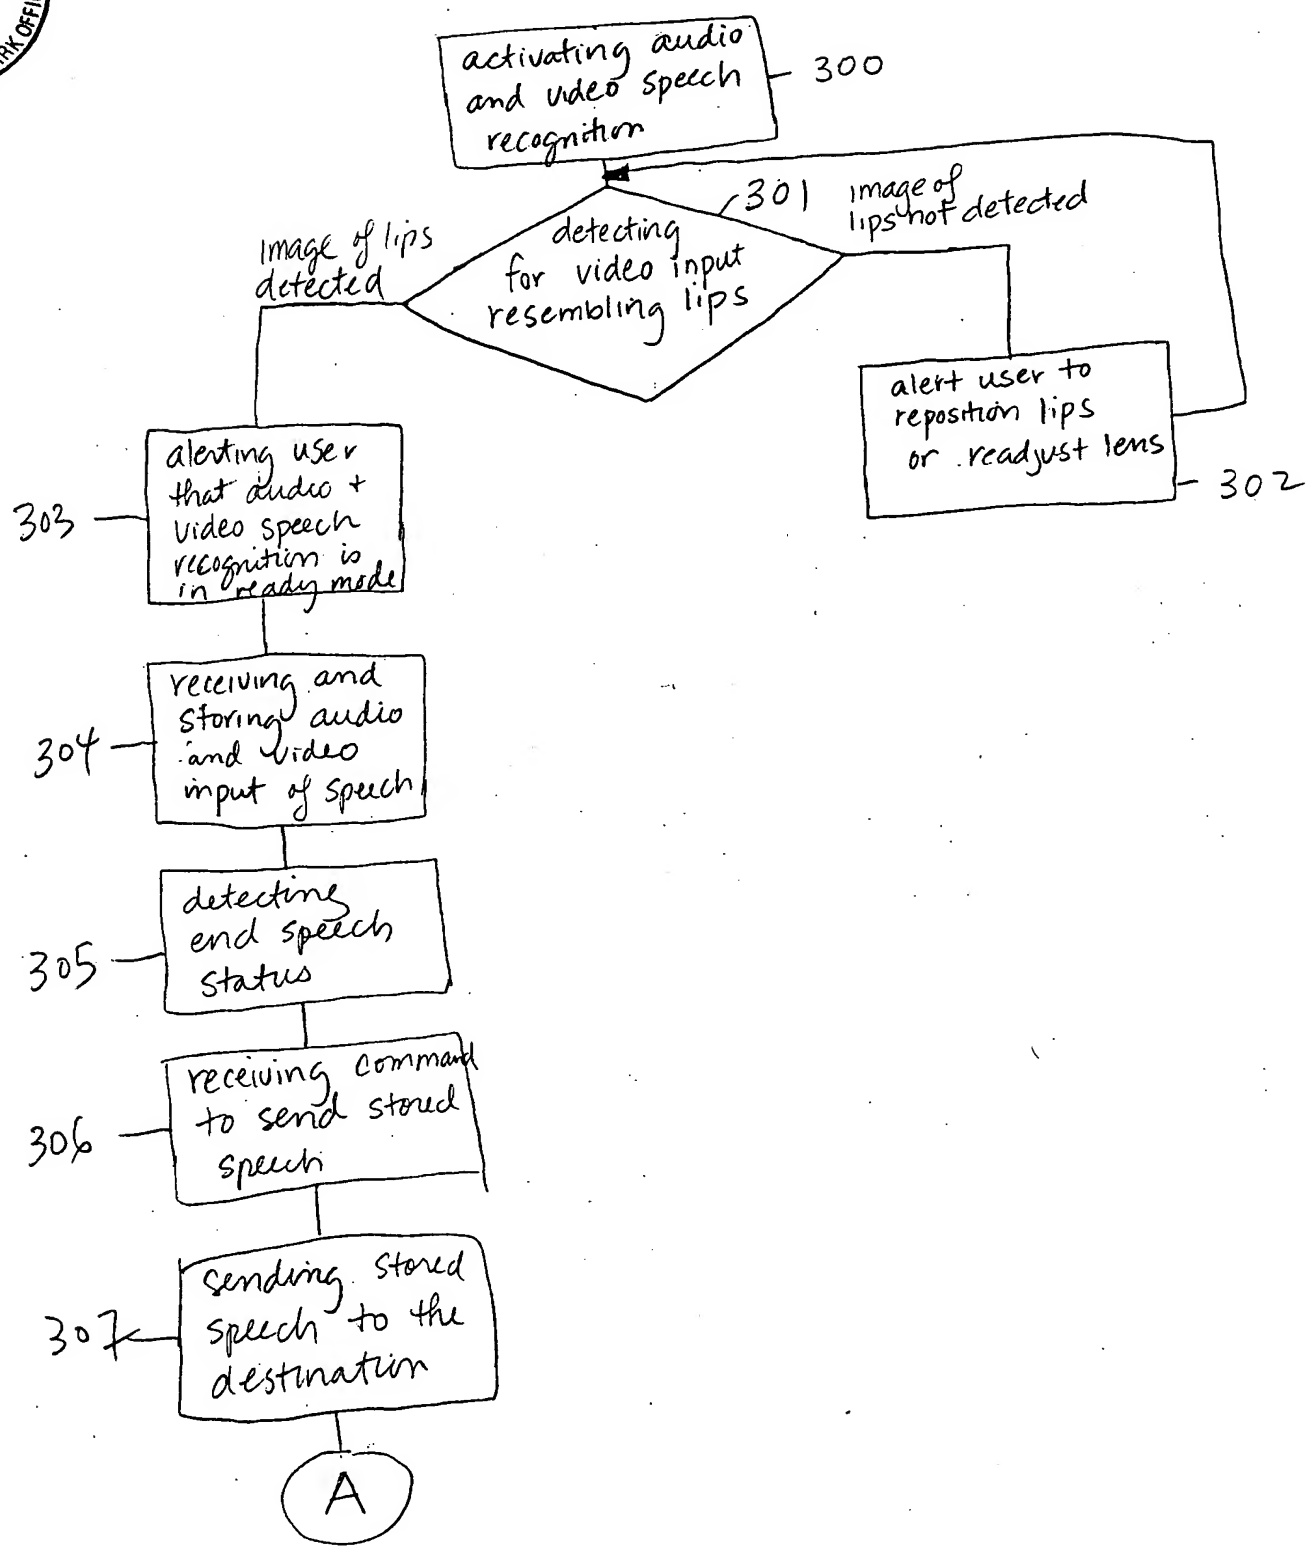 activating audio
and video speech
recognition
300
301
image of
lips not detected
Image of lips
detected
detecting
for video input
resembling lips
alert user to
reposition lips
or readjust lens
302
alerting user
that audio +
video speech
recognition is
in ready mode
303
receiving and
storing audio
and video
input of speech
304
detecting
end speech
status
305
receiving command
to send stored
speech
306
sending stored
speech to the
destination
307
A